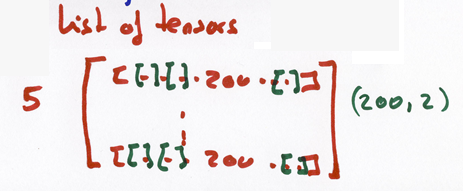 List of tensors
[[·][·]· 200 ·[·]]
5 (200, 2)
[[·][·]· 200 ·[·]]